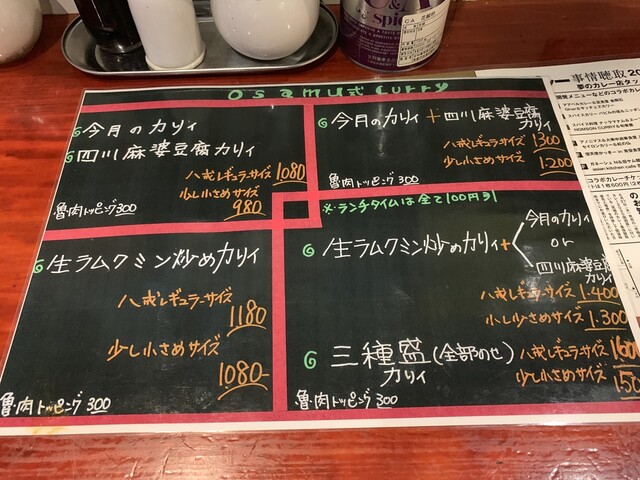 osamu式 curry
今月のカリィ
四川麻婆豆腐カリィ
八戒レギュラーサイズ 1080
少し小さめサイズ
980
魯肉トッピング300
今月のカリィ + 四川麻婆豆腐
カリィ
八戒レギュラーサイズ 1300
少し小さめサイズ 1.200
魯肉トッピング300
※ランチタイムは全て100円引
生ラムクミン炒めカリィ
八戒レギュラーサイズ
1180
少し小さめサイズ
1080-
魯肉トッピング300
生ラムクミン炒めカリィ+
今月のカリィ
or
四川麻婆豆腐
カリィ
八戒レギュラーサイズ 1.400
小し少さめサイズ 1.300
三種盛(全部のせ)
カリィ
八戒レギュラーサイズ
少し小さめサイズ
魯肉トッピング300
& spice
事情聴取 20
夢のカレー店タッ